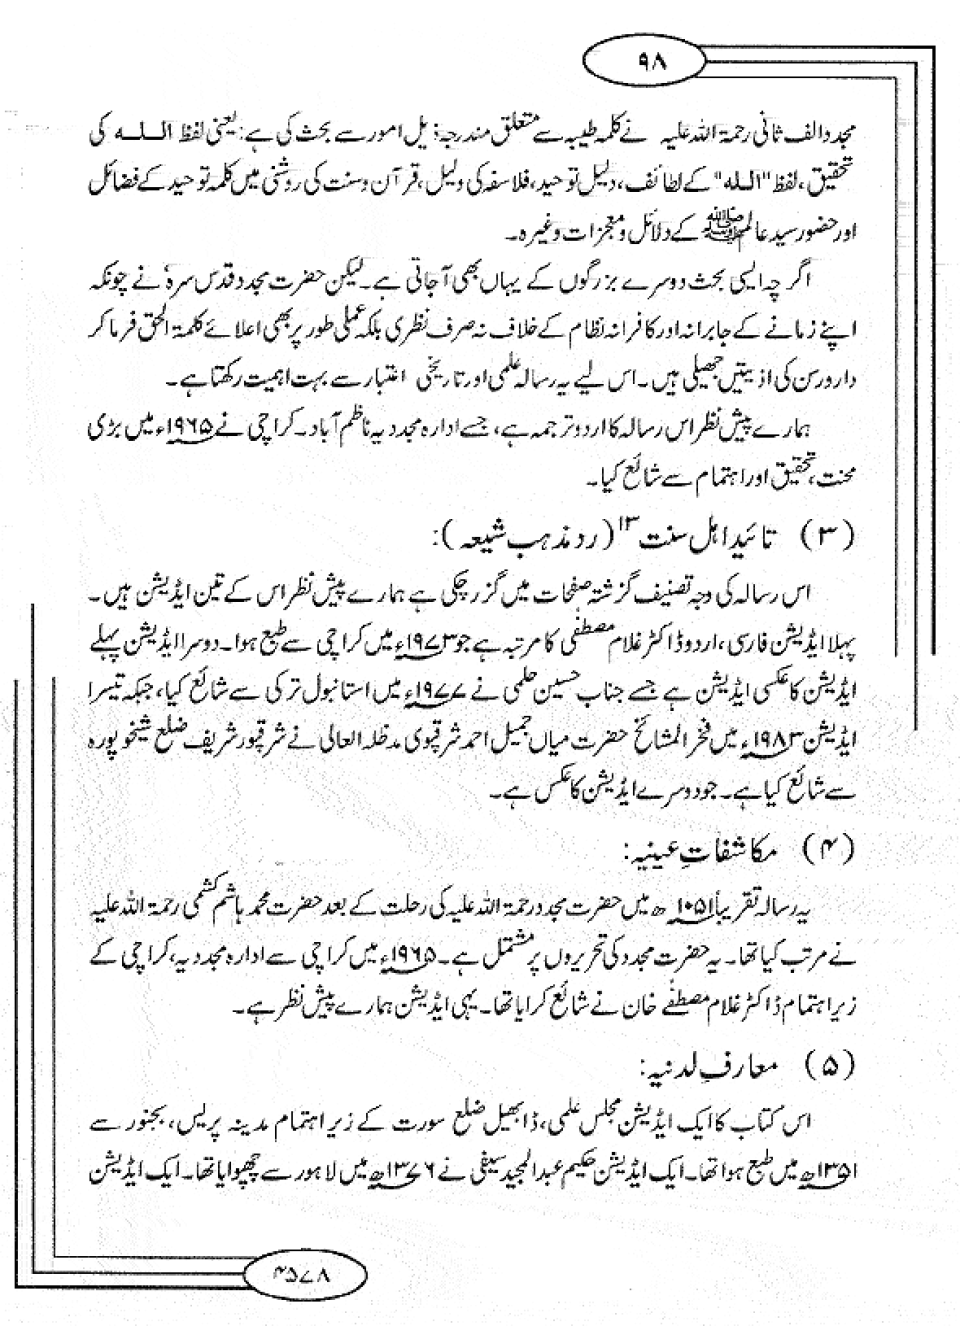 ۹۸
مجدد الف ثانی رحمۃ اللہ علیہ نے کلمہ طیبہ سے متعلق مندرجہ ذیل امور سے بحث کی ہے: یعنی لفظ اللہ کی
تحقیق، لفظ "اللہ" کے لطائف، دلیل توحید، فلاسفہ کی دلیل، قرآن و سنت کی روشنی میں کلمہ توحید کے فضائل
اور حضور سید عالم ﷺ کے دلائل و معجزات وغیرہ۔
اگرچہ ایسی بحث دوسرے بزرگوں کے یہاں بھی آ جاتی ہے۔ لیکن حضرت مجدد قدس سرہٗ نے چونکہ
اپنے زمانے کے جابرانہ اور کافرانہ نظام کے خلاف نہ صرف نظری بلکہ عملی طور پر بھی اعلائے کلمۃ الحق فرما کر
دار و رسن کی اذیتیں جھیلی ہیں۔ اس لیے یہ رسالہ علمی اور تاریخی اعتبار سے بہت اہمیت رکھتا ہے۔
ہمارے پیش نظر اس رسالہ کا اردو ترجمہ ہے، جسے ادارہ مجددیہ ناظم آباد۔ کراچی نے ۱۹۶۵ء میں بڑی
محنت، تحقیق اور اہتمام سے شائع کیا۔
(۳) تائید اہل سنت ۱۳ (رد مذہب شیعہ):
اس رسالہ کی وجہ تصنیف گزشتہ صفحات میں گزر چکی ہے ہمارے پیش نظر اس کے تین ایڈیشن ہیں۔
پہلا ایڈیشن فارسی، اردو ڈاکٹر غلام مصطفٰی کا مرتبہ ہے جو ۱۹۷۳ء میں کراچی سے طبع ہوا۔ دوسرا ایڈیشن پہلے
ایڈیشن کا عکسی ایڈیشن ہے جسے جناب حسین حلمی نے ۱۹۷۷ء میں استانبول ترکی سے شائع کیا، جبکہ تیسرا
ایڈیشن ۱۹۸۳ء میں فخر المشائخ حضرت میاں جمیل احمد شرقپوی مدظلہ العالی نے شرقپور شریف ضلع شیخوپورہ
سے شائع کیا ہے۔ جو دوسرے ایڈیشن کا عکس ہے۔
(۴) مکاشفاتِ عینیہ:
یہ رسالہ تقریباً ۱۰۵۱ھ میں حضرت مجدد رحمۃ اللہ علیہ کی رحلت کے بعد حضرت محمد ہاشم کشمی رحمۃ اللہ علیہ
نے مرتب کیا تھا۔ یہ حضرت مجدد کی تحریروں پر مشتمل ہے۔ ۱۹۶۵ء میں کراچی سے ادارہ مجددیہ، کراچی کے
زیر اہتمام ڈاکٹر غلام مصطفٰے خان نے شائع کرایا تھا۔ یہی ایڈیشن ہمارے پیش نظر ہے۔
(۵) معارفِ لدنیہ:
اس کتاب کا ایک ایڈیشن مجلس علمی، ڈابھیل ضلع سورت کے زیر اہتمام مدینہ پریس، بجنور سے
۱۳۵۱ھ میں طبع ہوا تھا۔ ایک ایڈیشن حکیم عبدالمجید سیفی نے ۱۳۷۶ھ میں لاہور سے چھپوایا تھا۔ ایک ایڈیشن
۴۵۷۸